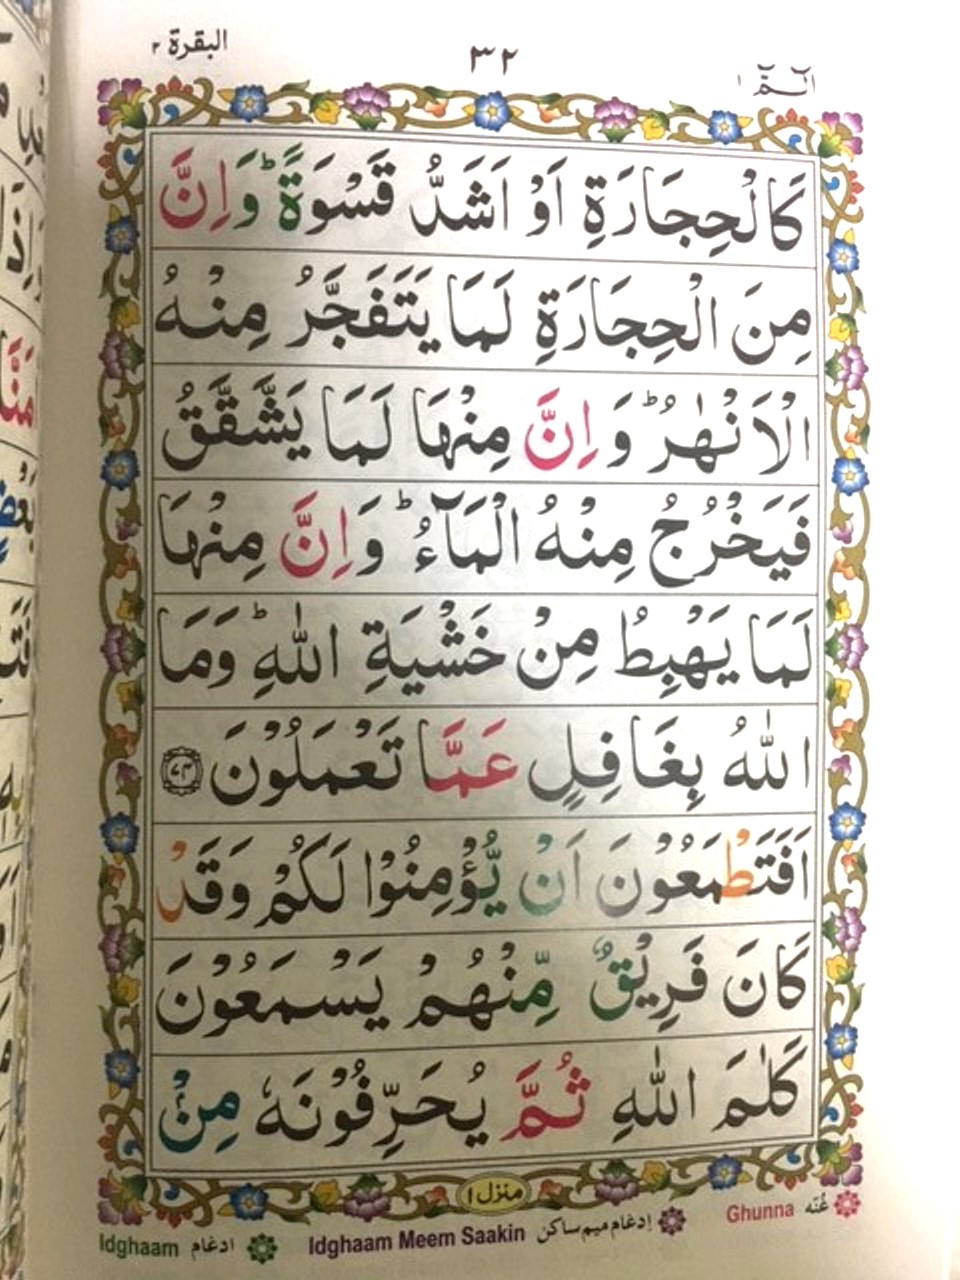 البقرة ٢
٣٢
الٓمّٓ ١
كَالْحِجَارَةِ اَوْ اَشَدُّ قَسْوَةً ؕ وَاِنَّ
مِنَ الْحِجَارَةِ لَمَا يَتَفَجَّرُ مِنْهُ
الْاَنْهٰرُ ؕ وَ اِنَّ مِنْهَا لَمَا يَشَّقَّقُ
فَيَخْرُجُ مِنْهُ الْمَآءُ ؕ وَاِنَّ مِنْهَا
لَمَا يَهْبِطُ مِنْ خَشْيَةِ اللّٰهِ ؕ وَمَا
اللّٰهُ بِغَافِلٍ عَمَّا تَعْمَلُوْنَ ﴿۷۴﴾
اَفَتَطْمَعُوْنَ اَنْ يُّؤْمِنُوْا لَكُمْ وَقَدْ
كَانَ فَرِيْقٌ مِّنْهُمْ يَسْمَعُوْنَ
كَلٰمَ اللّٰهِ ثُمَّ يُحَرِّفُوْنَهٗ مِنْۢ
منزل ١
Idghaam ادغام Idghaam Meem Saakin إدغام ميم ساكن Ghunna غُنّه